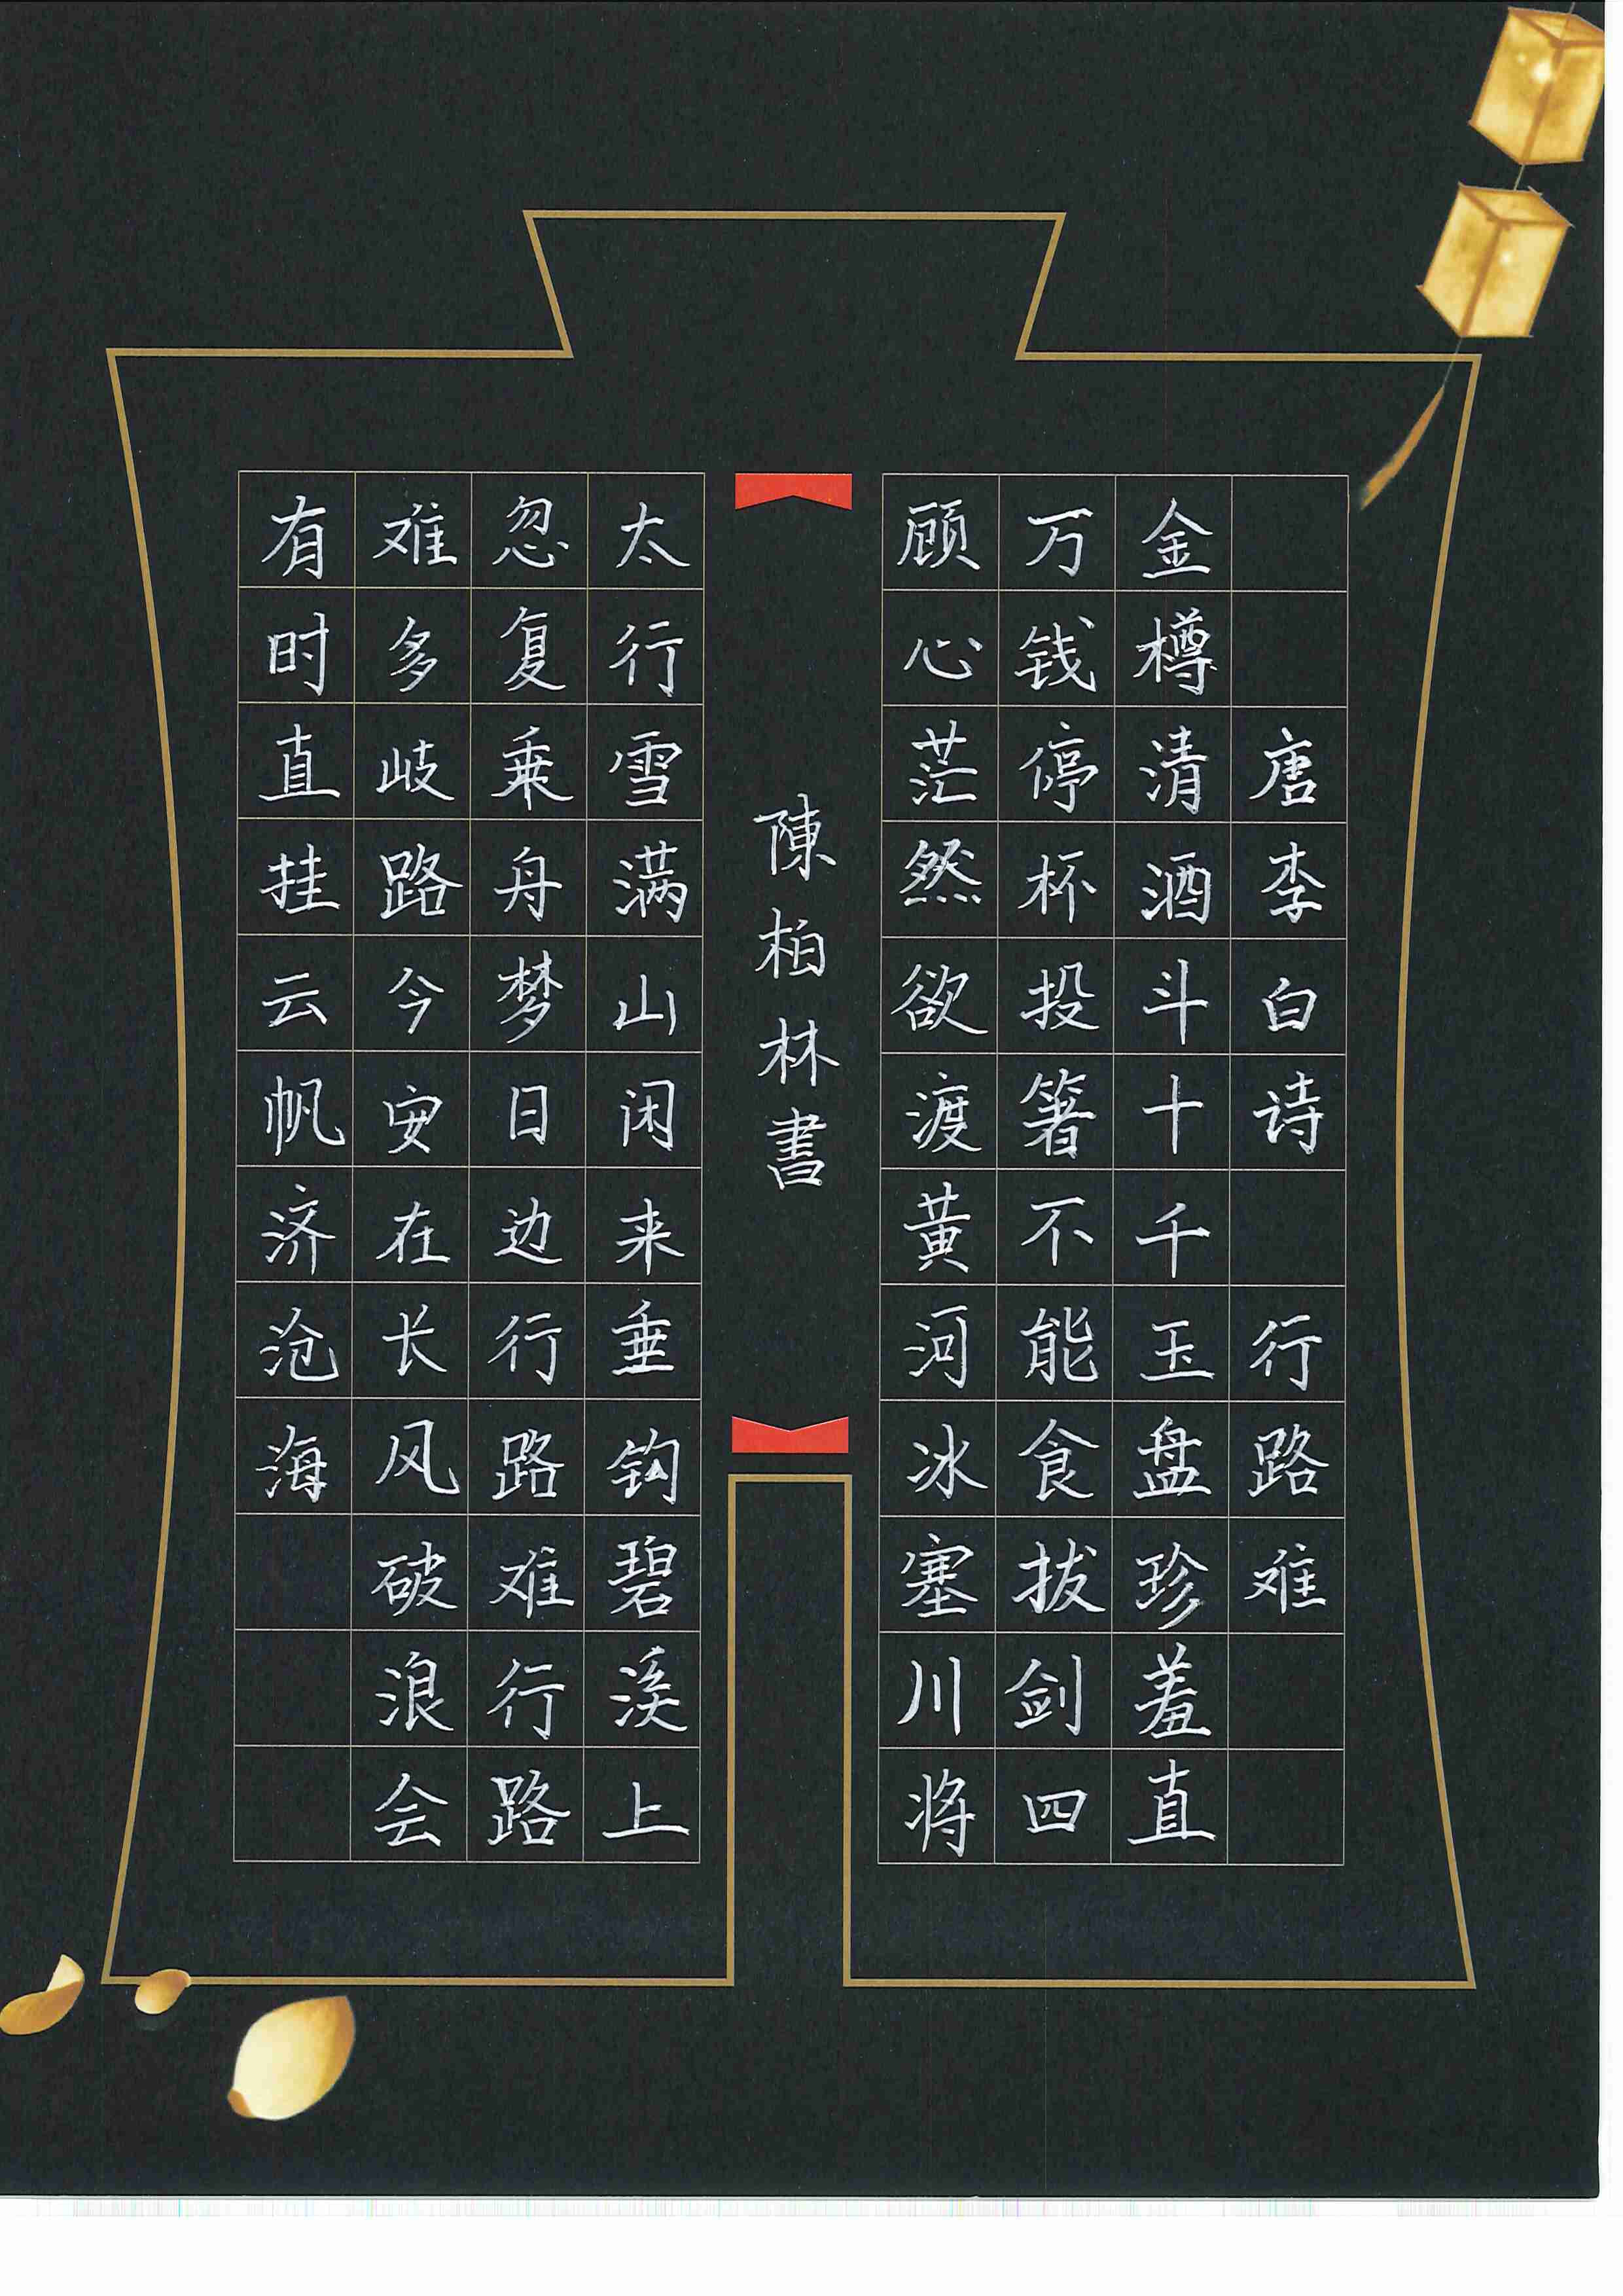 唐李白诗 行路难
金樽清酒斗十千玉盘珍羞直
万钱停杯投箸不能食拔剑四
顾心茫然欲渡黄河冰塞川将
太行雪满山闲来垂钩碧溪上
忽复乘舟梦日边行路难行路
难多岐路今安在长风破浪会
有时直挂云帆济沧海
陳柏林書